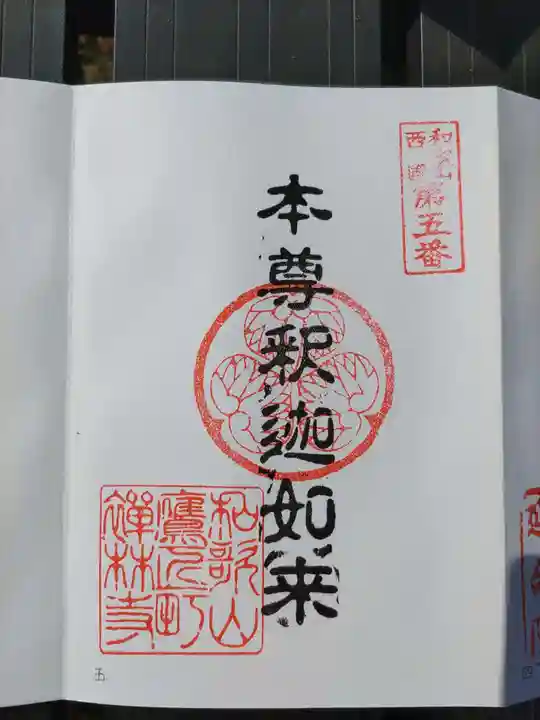 和歌山
西国
第五番
本尊釈迦如来
和歌山
鷹匠町
禅林寺
五
四